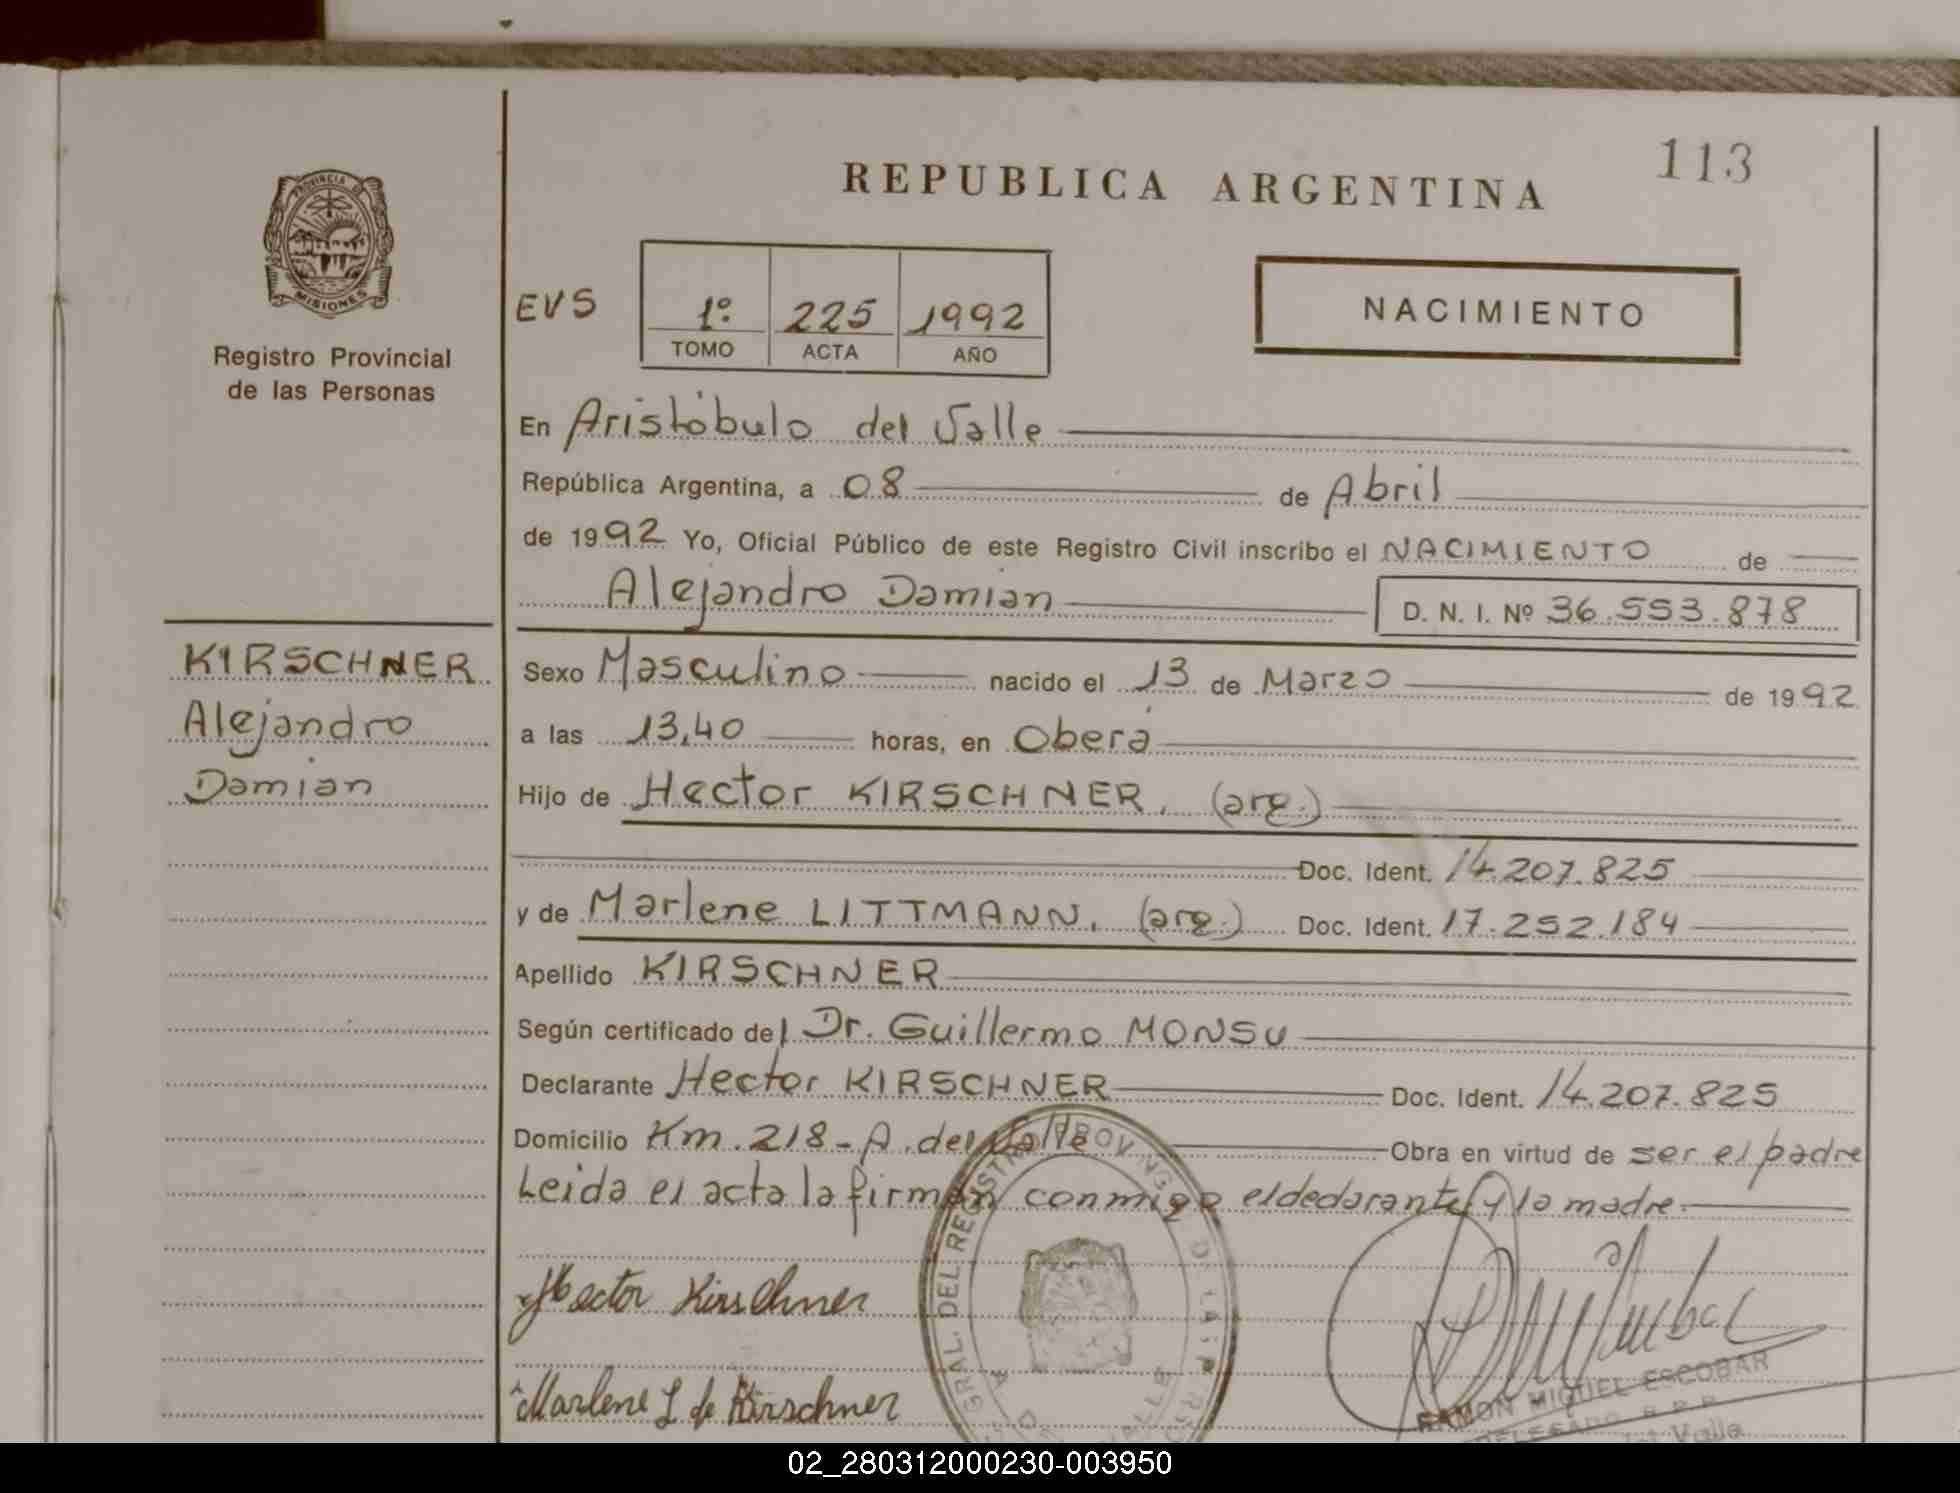 113
REPUBLICA ARGENTINA
PROVINCIA DE
MISIONES
Registro Provincial
de las Personas
EVS
1º 225 1992
TOMO ACTA AÑO
NACIMIENTO
En Aristóbulo del Valle
República Argentina, a 08 de Abril
de 1992 Yo, Oficial Público de este Registro Civil inscribo el NACIMIENTO de
Alejandro Damian D. N. I. Nº 36.553.878
KIRSCHNER
Alejandro
Damian
Sexo Masculino nacido el 13 de Marzo de 1992
a las 13,40 horas, en Oberá
Hijo de Hector KIRSCHNER. (arg.)
Doc. Ident. 14.207.825
y de Marlene LITTMANN. (arg.) Doc. Ident. 17.252.184
Apellido KIRSCHNER
Según certificado del Dr. Guillermo MONSU
Declarante Hector KIRSCHNER Doc. Ident. 14.207.825
Domicilio Km. 218 - A. del Valle Obra en virtud de ser el padre
Leida el acta la firman conmigo el declarante y la madre.
Hector Kirschner
Marlene L de Kirschner
GRAL. DEL REGISTRO PROVINC DE LAS P
RAMON MIGUEL ESCOBAR
DELEGADO R.P.P.
del Valle
02_280312000230-003950